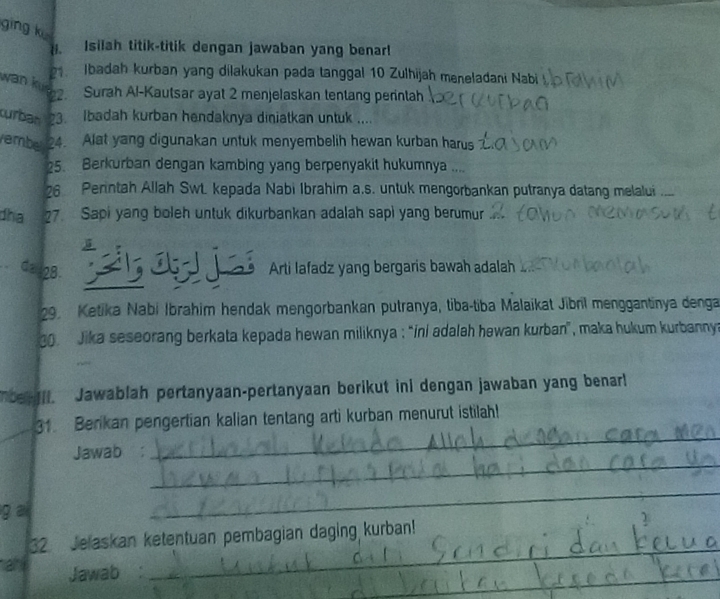 ging ku
II. Isilah titik-titik dengan jawaban yang benar!
21. Ibadah kurban yang dilakukan pada tanggal 10 Zulhijah meneladani Nabi Ibrahim
wan ku
22. Surah Al-Kautsar ayat 2 menjelaskan tentang perintah berkurban
kurban 23. Ibadah kurban hendaknya diniatkan untuk ....
24. Alat yang digunakan untuk menyembelih hewan kurban harus tajam
25. Berkurban dengan kambing yang berpenyakit hukumnya ....
26. Perintah Allah Swt. kepada Nabi Ibrahim a.s. untuk mengorbankan putranya datang melalui ....
dha 27. Sapi yang boleh untuk dikurbankan adalah sapi yang berumur 2 tahun memasuki
28. فَصَلِّ لِرَبِّكَ وَانْحَرْ Arti lafadz yang bergaris bawah adalah berkurbanlah
29. Ketika Nabi Ibrahim hendak mengorbankan putranya, tiba-tiba Malaikat Jibril menggantinya denga
30. Jika seseorang berkata kepada hewan miliknya : "ini adalah hewan kurban", maka hukum kurbannya
....
III. Jawablah pertanyaan-pertanyaan berikut ini dengan jawaban yang benar!
31. Berikan pengertian kalian tentang arti kurban menurut istilah!
Jawab : Kepada Allah dengan cara men
hewan pada hari dan cara ya
32. Jelaskan ketentuan pembagian daging kurban!
Jawab : Untuk diri sendiri dan kelua